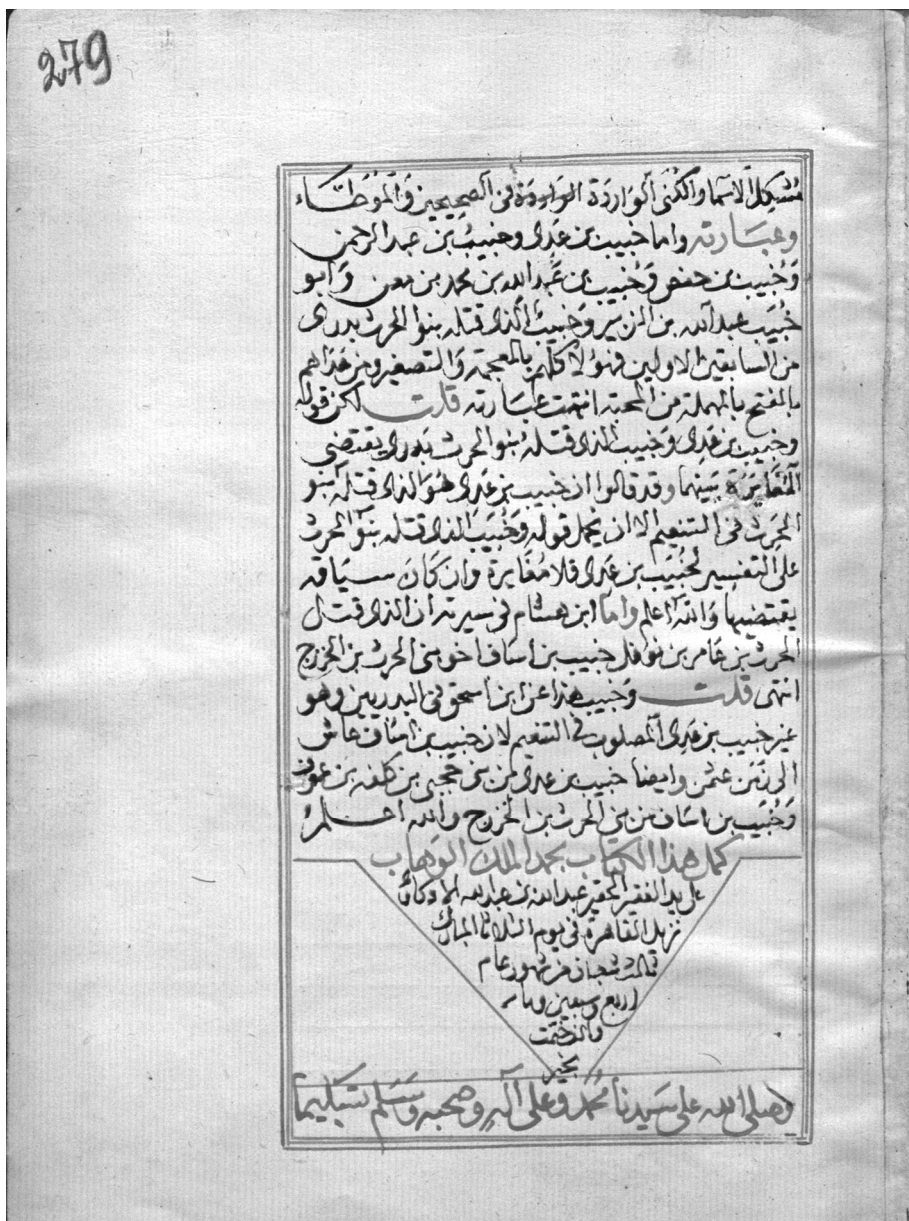 279
مُشكِل الاسما والكُنى الواردَة الوارِدَة فى الصحِيحين وَالموَطّاء
وعبَارته واما خبيب بن عَدى وخبيبُ بن عبد الرحمن
وَخُبيب بن حفص وَخُبيب بن عَبد الله بن محمد بن معن وَابو
خُبَيب عبد الله بن الزبير وَخُبيب الذى قتله بنوا الحرث بدرى
من السابقين الاولين فهؤلآ كلهم بالمعجمة وَالتصغير ومن عَدَاهم
بالفتح بالمهملة من المحبة انتهت عبَارته قلت لكن قوله
وخبيب بن عَدى وَخبيب الذى قتله بنوا الحرث بَدرى يقتضى
المُغَايَرَة بينهما وقد قالوا ان خبيب بن عَدى هُوَ الذى قتله بنو
الحَرث فى التنعيم الا ان يحمل قوله وَخُبَيب الذى قتله بنوا الحرث
على التفسير لخُبَيب بن عَدى فلا مُغايرة وان كانَ سيَاقه
يقتضيها وَالله اعلم واما ابن هشام فى سيرته ان الذى قتل
الحرث بن عَامر بن نوافل خبيب بن اساف اخو بنى الحرث بن الخزرج
انتهى قلت وَخبيب هذا عن ابن اسحق فى البدريين وهو
غير خبيب بن عَدى المصلوب فى التنعيم لان خبيب بن اسَاف عاش
الى زمن عثمن وايضا خبيب بن عدى من بنى جحجبى بن كلفه بن عوف
وَخُبَيب بن اسَاف من بنى الحرث بن الخزرج والله اعلمُ
كمل هذا الكتاب بحمد الملك الوهاب
على يد الفقير الحقير عبد الله بن عبد الله
نزيل القاهرة فى يوم الثلاثا المبارك
ثالث شعبان من شهور عام
اربع وسبعين
وألف ختمت
بخير
وصلى الله على سَيدنا محمد وعلى آله وصحبه وَسَلم تسليما